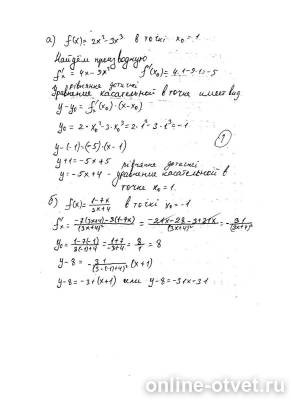 а) f(x)=2x²-3x³ в точці x₀=1
Найдём производную
f'ₓ=4x-9x² f'(x₀)=4·1-9·1=-5
рівняння дотичної
Уравнение касательной в точке имеет вид
y-y₀=f'ₓ(x₀)·(x-x₀)
y₀=2·x₀²-3·x₀³=2·1²-3·1³=-1
y-(-1)=(-5)(x-1)
①
y+1=-5x+5 рівняння дотичної
y=-5x+4 - уравнение касательной в
точке x₀=1.
б) f(x)=(1-7x)/(3x+4) в точці x₀=-1
f'ₓ=(-7(3x+4)-3(1-7x))/(3x+4)²=(-21x-28-3+21x)/(3x+4)²=-31/(3x+4)²
y₀=(1-7(-1))/(3(-1)+4)=(1+7)/(-3+4)=8/1=8
y-8=-31/(3·(-1)+4)²(x+1)
y-8=-31(x+1) или y-8=-31x-31
online-otvet.ru